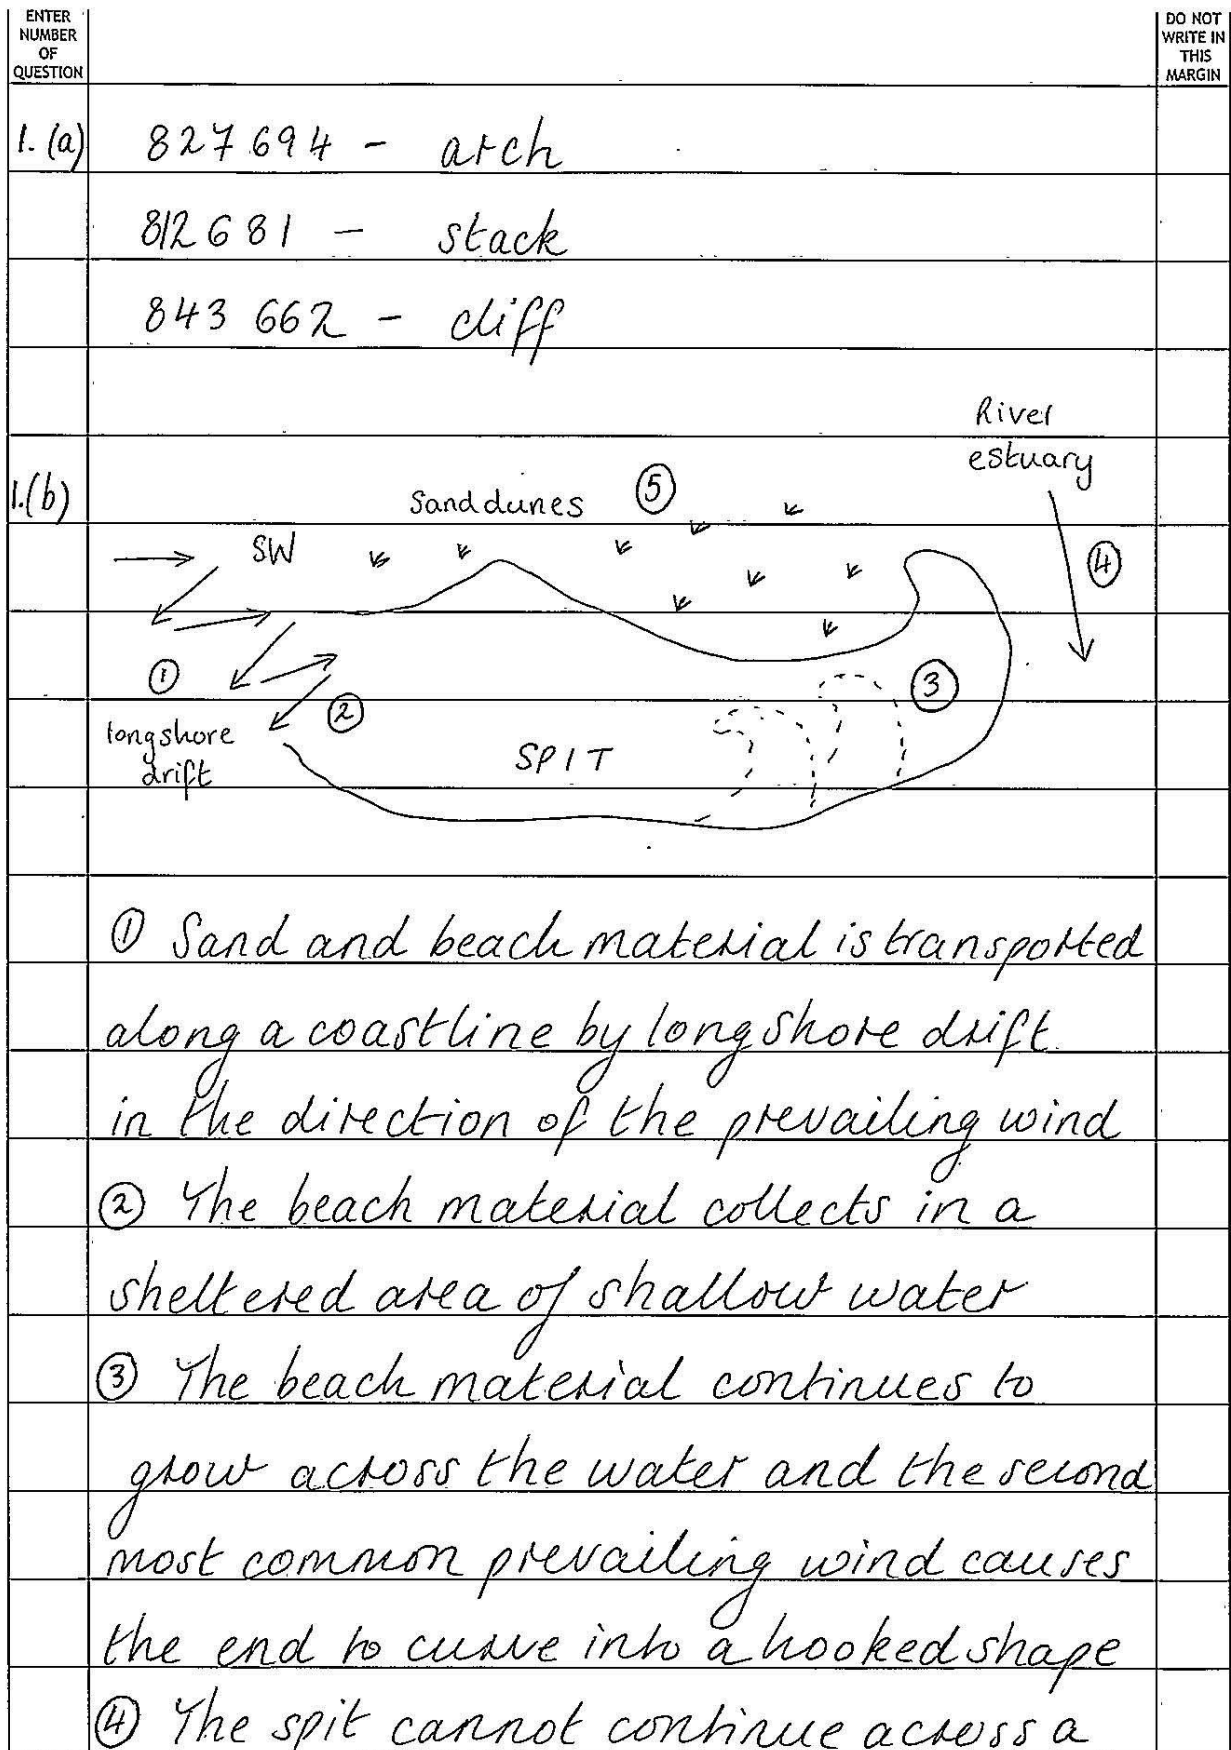 ENTER
NUMBER
OF
QUESTION
DO NOT
WRITE IN
THIS
MARGIN
1. (a) 827694 - arch
812681 - stack
843 662 - cliff
River
estuary
1.(b) Sand dunes ⑤
SW
④
① ③
② 
longshore
drift
SPIT
① Sand and beach material is transported
along a coastline by longshore drift.
in the direction of the prevailing wind
② The beach material collects in a
sheltered area of shallow water
③ The beach material continues to
grow across the water and the second
most common prevailing wind causes
the end to curve into a hooked shape
④ The spit cannot continue across a